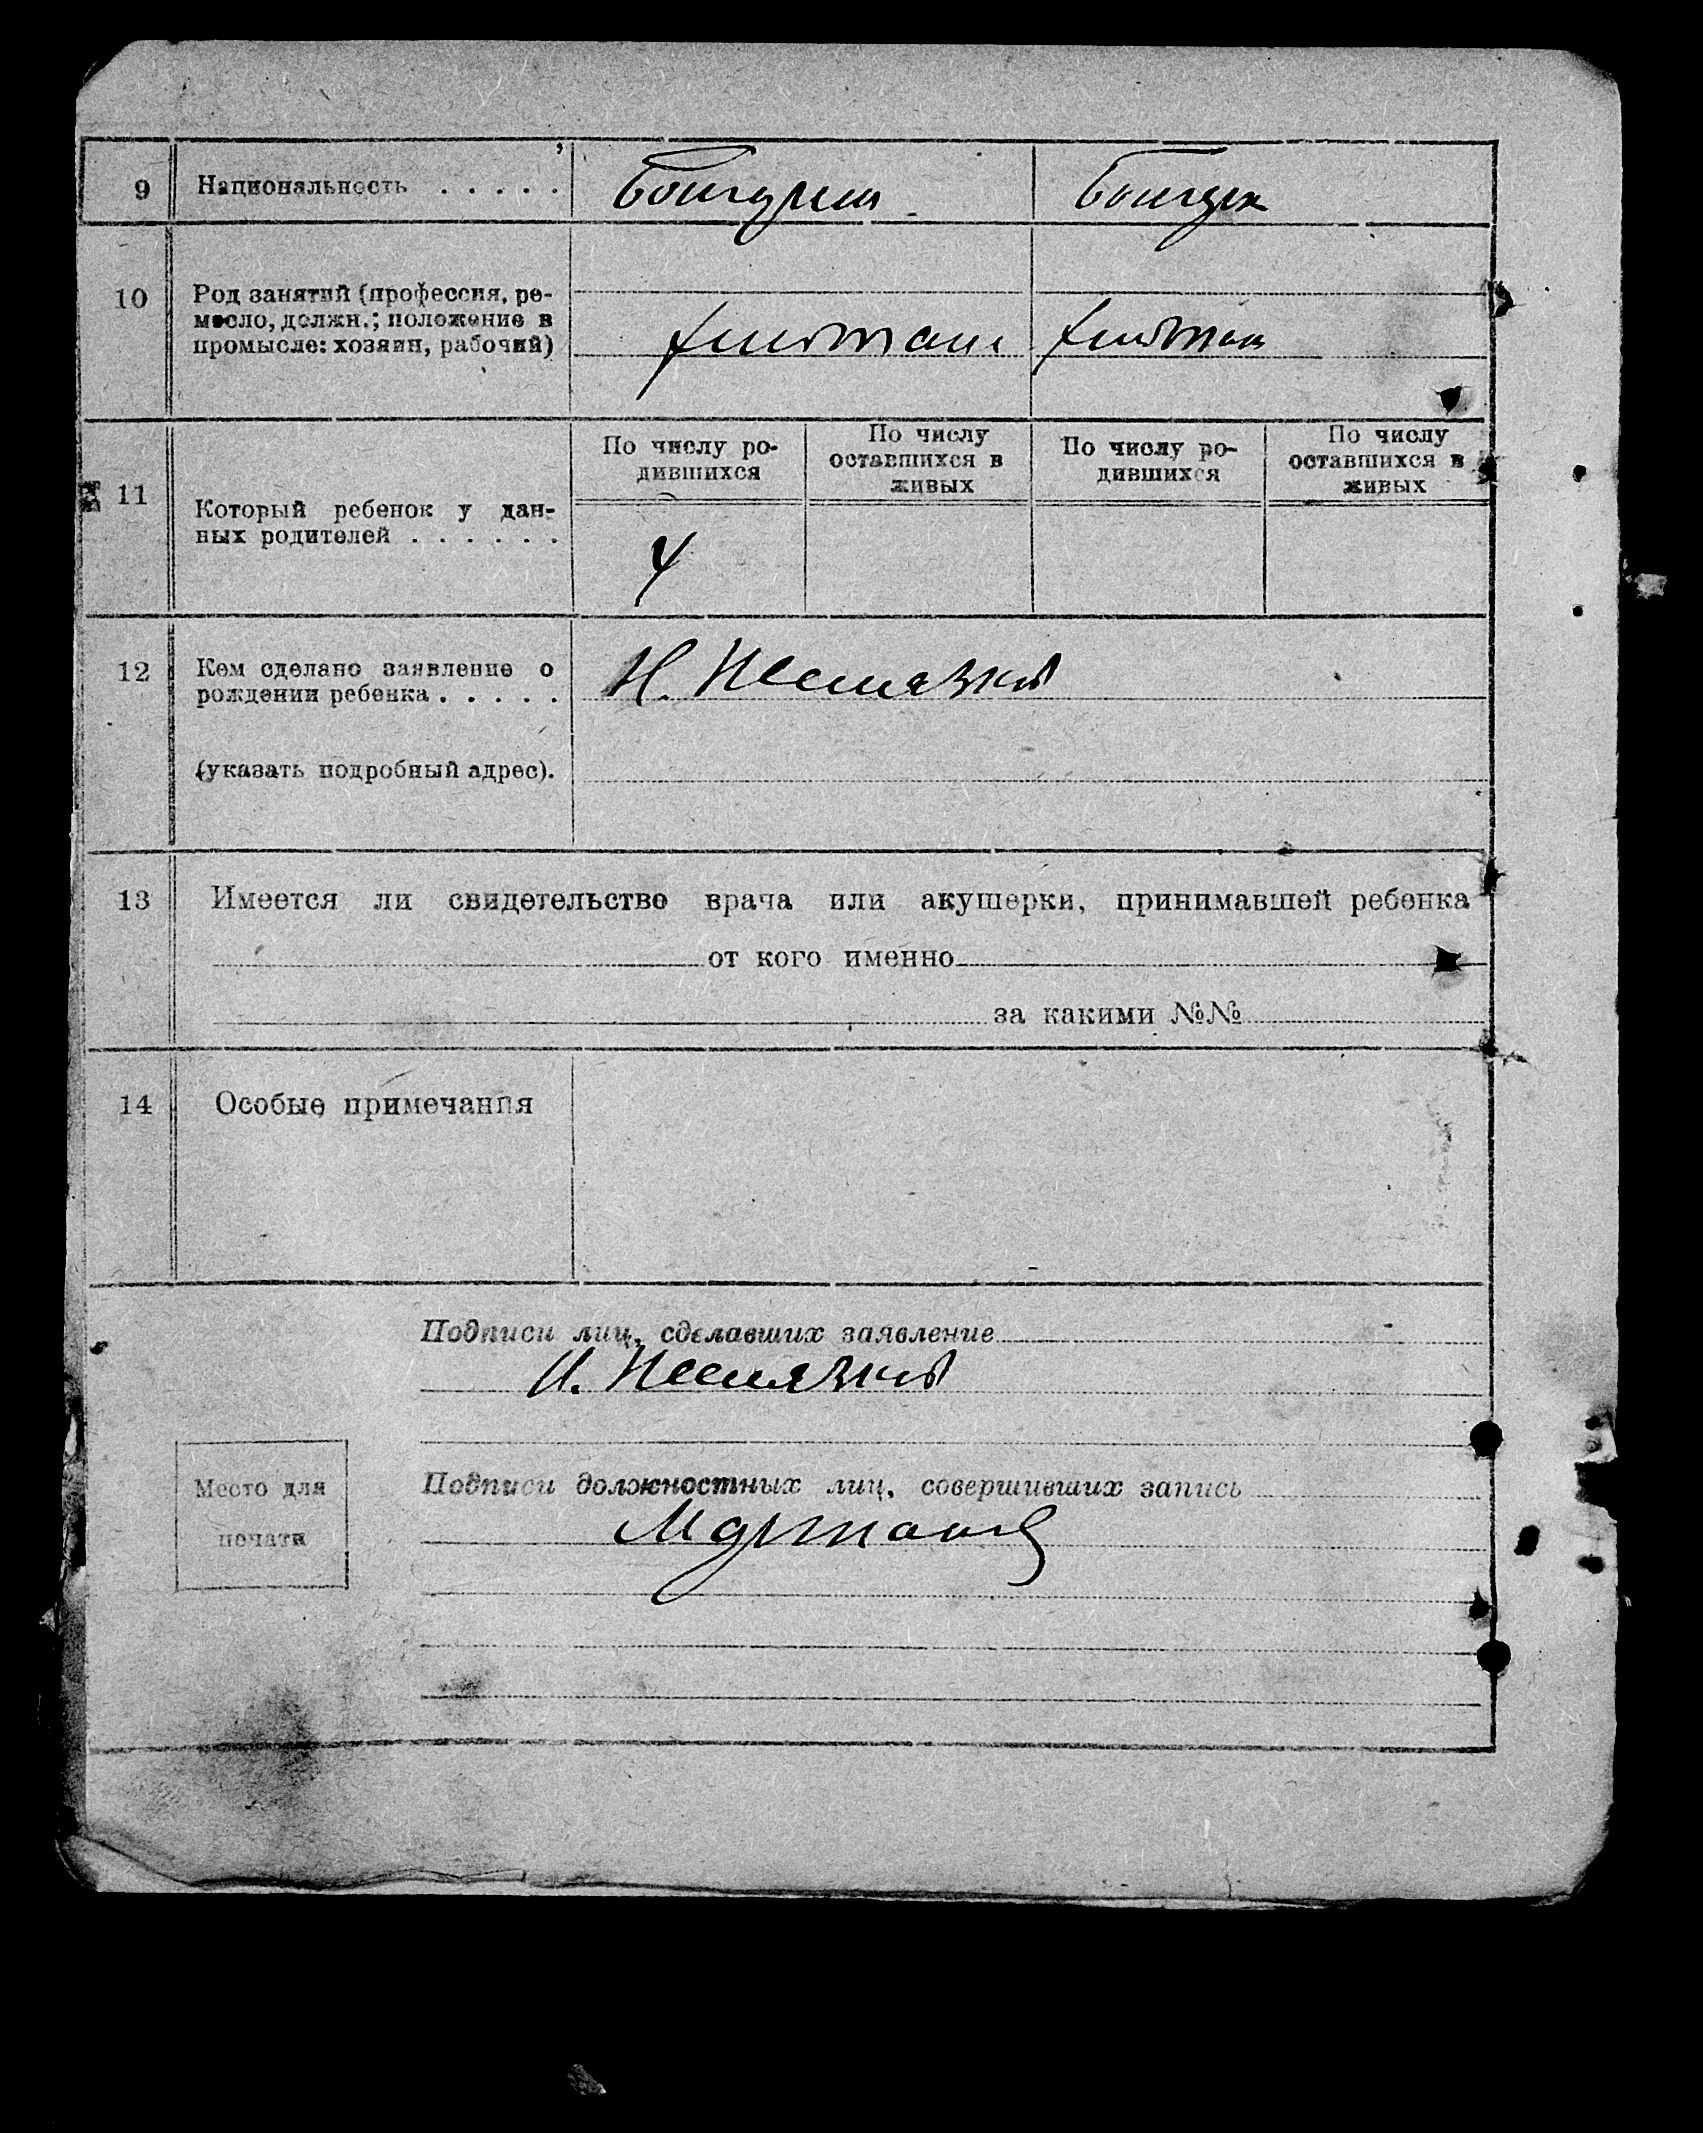 9 Национальность . . . . .
10 Род занятий (профессия, ре-
месло, должн.; положение в
промысле: хозяин, рабочий)
По числу ро-
дившихся
По числу
оставшихся в
живых
По числу ро-
дившихся
По числу
оставшихся в
живых
11 Который ребенок у дан-
ных родителей . . . . . .
4
12 Кем сделано заявление о
рождении ребенка . . . . .
(указать подробный адрес).
13 Имеется ли свидетельство врача или акушерки, принимавшей ребенка
от кого именно
за какими №№
14 Особые примечания
Подписи лиц, сделавших заявление
Место для
печати
Подписи должностных лиц, совершивших запись